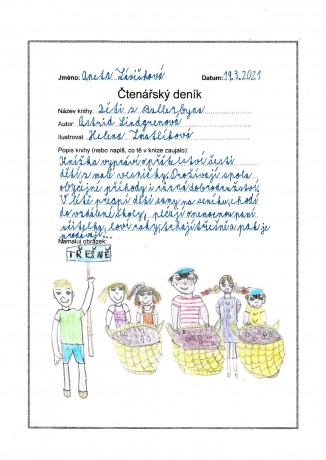 Jméno: Aneta Datum: 19.3.2021
Čtenářský deník
Název knihy: Děti z Bullerbynu
Autor: Astrid Lindgrenová
Ilustroval: Helena Zmatlíková
Popis knihy (nebo napiš, co tě v knize zaujalo):
Knížka vypráví o přátelství šesti
dětí z malé vesničky. Prožívají spolu
obyčejné příhody i různá dobrodružství.
V létě přespí děti samy na seníku, chodí
do vzdálené školy, pečují o nemocnou paní
učitelku, loví raky, trhají třešně a pak je
prodávají...
Namaluj obrázek:
TŘEŠNĚ